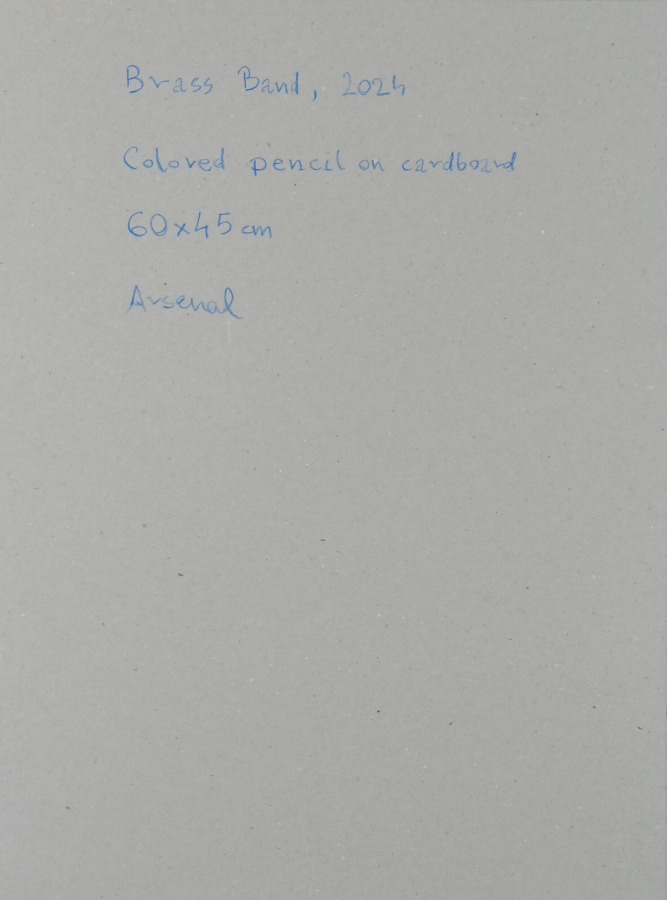 Brass Band, 2024
Colored pencil on cardboard
60x45cm
Arsenal